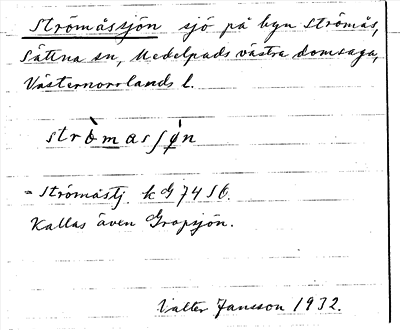 Strömåssjön sjö på byn Strömås,
Sättna sn, Medelpads västra domsaga,
Västernorrlands l.
strö̀masʃø̀n
= Strömåstj. kG 74 S6.
Kallas även Gropsjön.
Valter Jansson 1932.